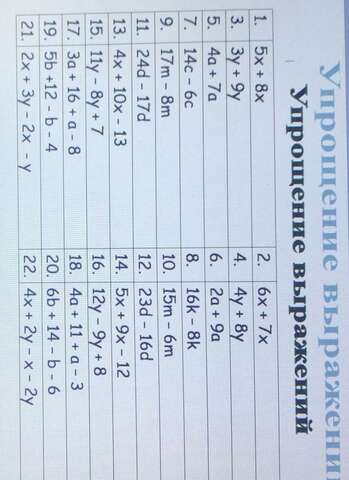 Упрощение выражени
Упрощение выражений
1. 5x + 8x 2. 6x + 7x
3. 3y + 9y 4. 4y + 8y
5. 4a + 7a 6. 2a + 9a
7. 14c - 6c 8. 16k - 8k
9. 17m - 8m 10. 15m - 6m
11. 24d - 17d 12. 23d - 16d
13. 4x + 10x - 13 14. 5x + 9x - 12
15. 11y - 8y + 7 16. 12y - 9y + 8
17. 3a + 16 + a - 8 18. 4a + 11 + a - 3
19. 5b +12 - b - 4 20. 6b + 14 - b - 6
21. 2x + 3y - 2x - y 22. 4x + 2y - x - 2y